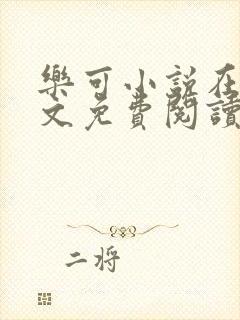 樂可小說在
文免費閱讀
二将